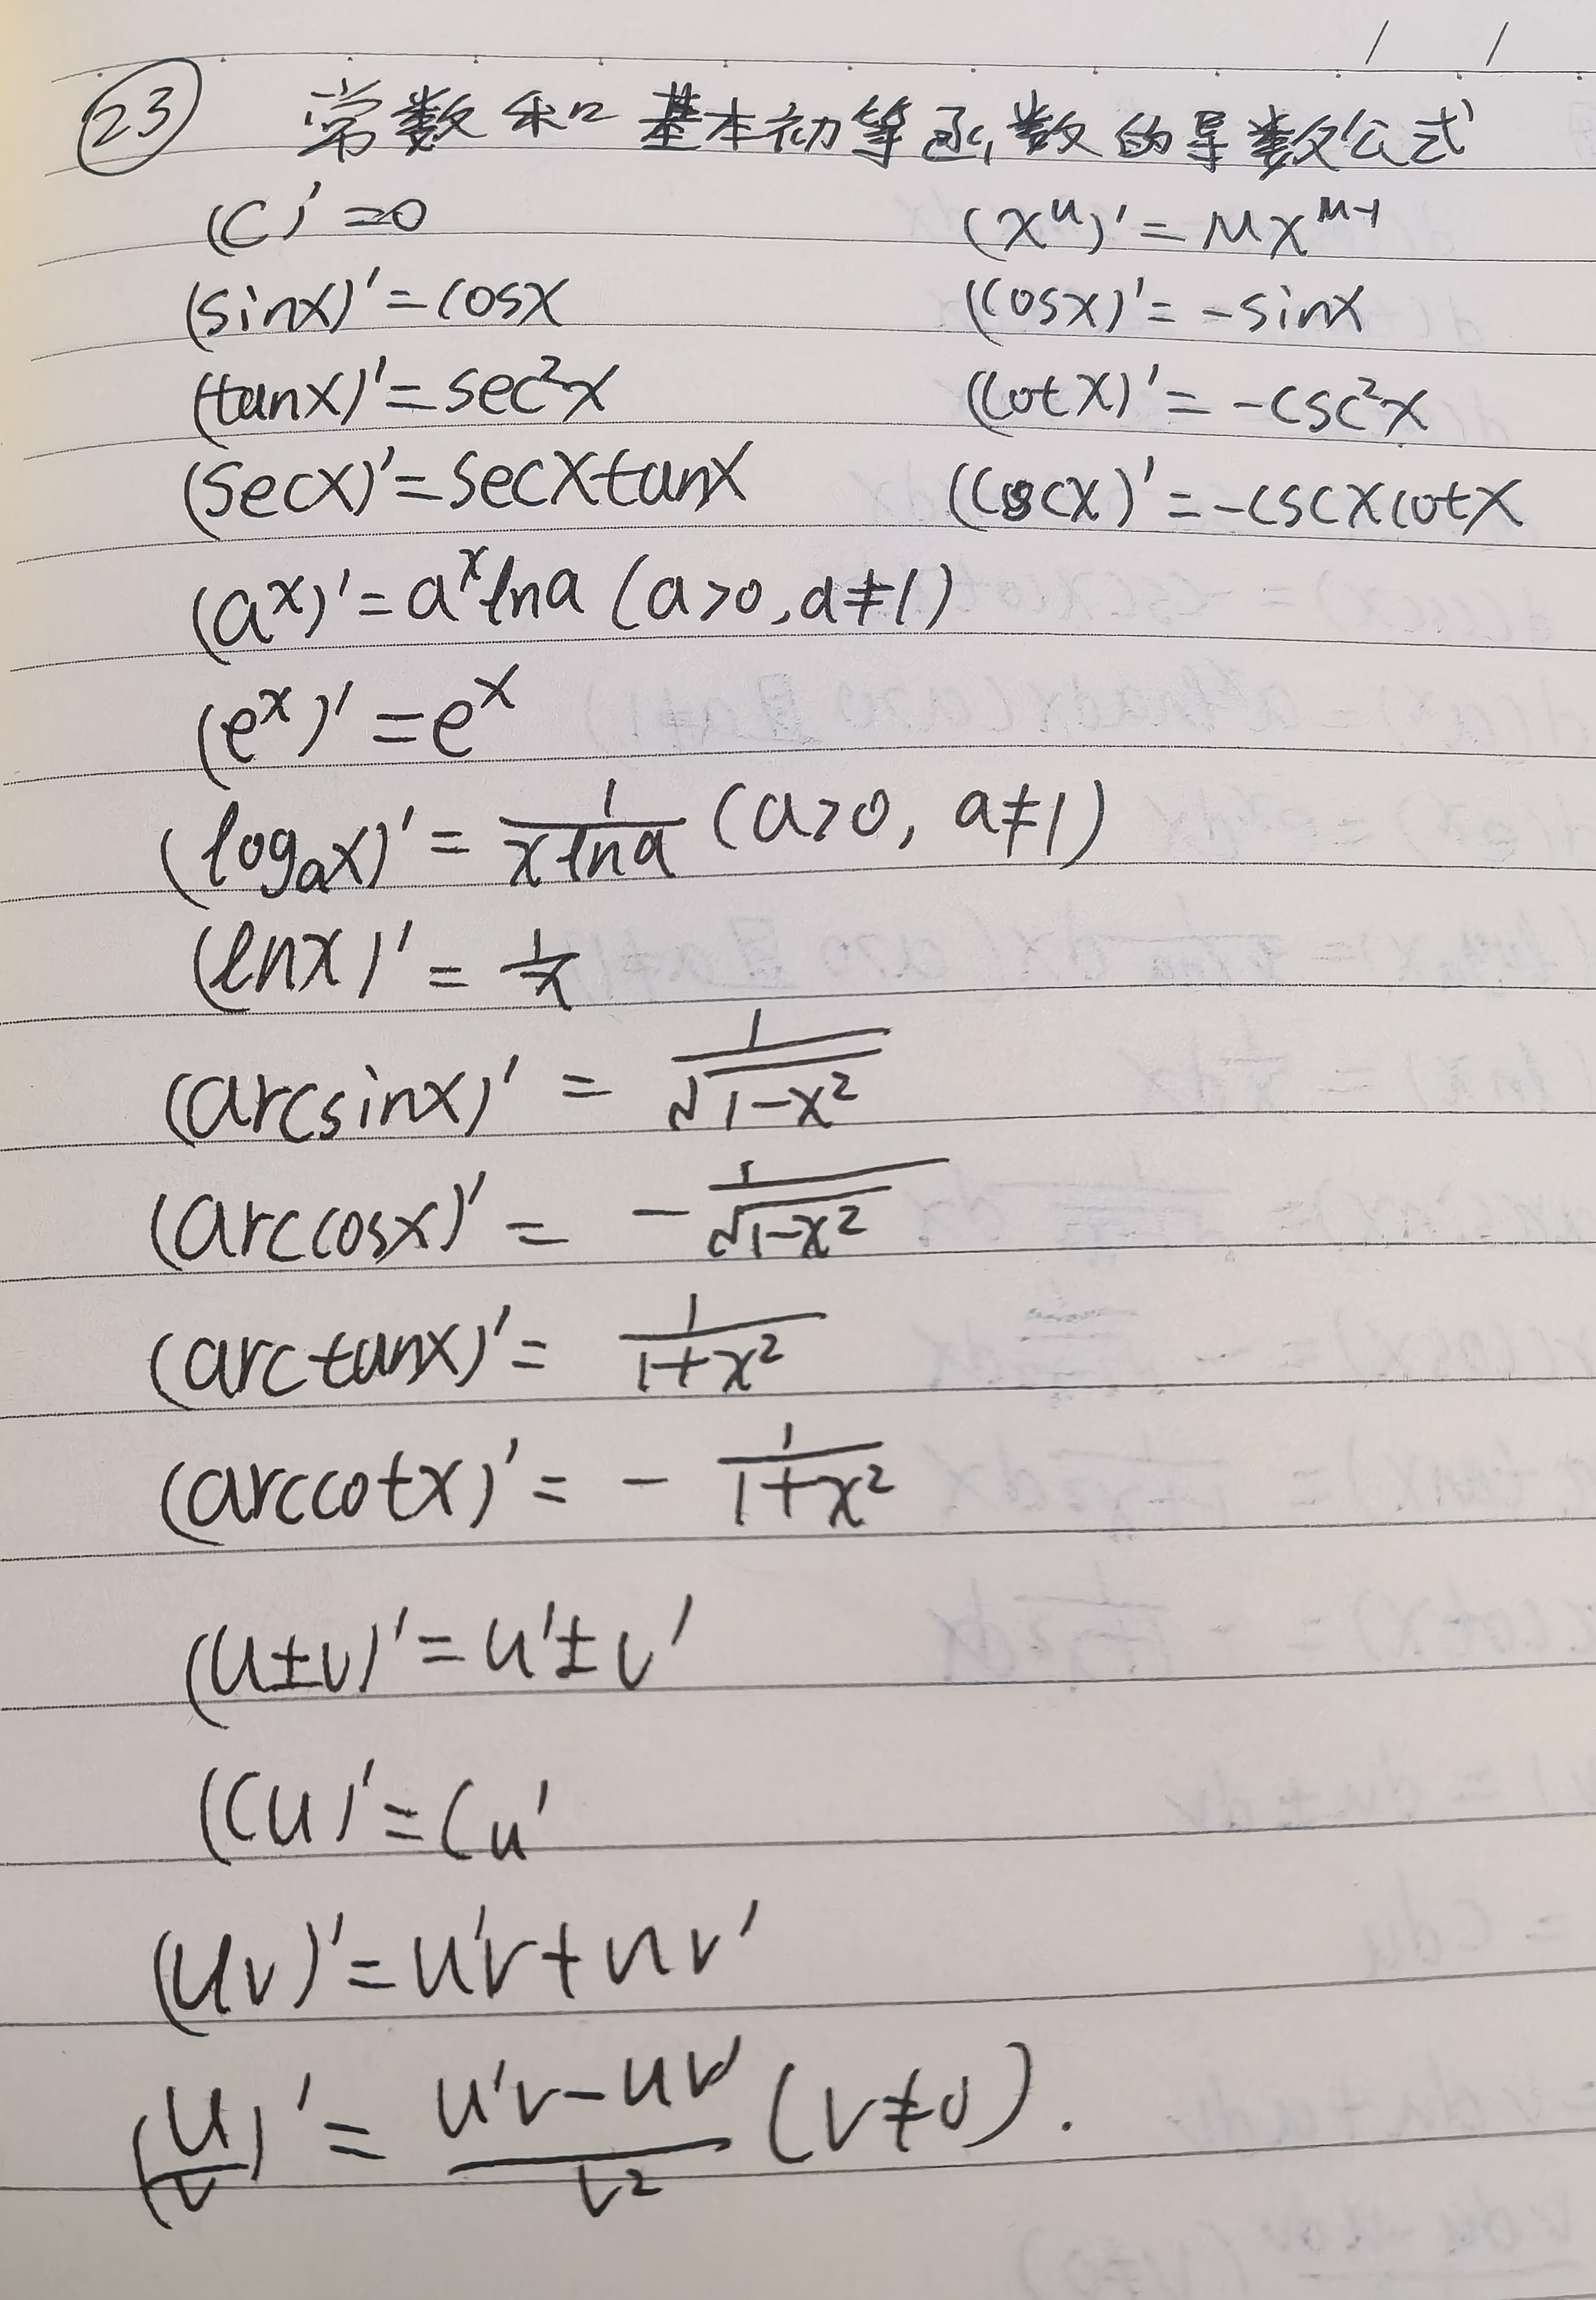 ㉓ 常数和基本初等函数的导数公式
(C)'=0 (x^μ)'=μx^{μ-1}
(sinx)'=cosx (cosx)'=-sinx
(tanx)'=sec²x (cotx)'=-csc²x
(secx)'=secxtanx (cscx)'=-cscxcotx
(a^x)'=a^x lna (a>0,a≠1)
(e^x)'=e^x
(log_a x)'=1/(xlna) (a>0, a≠1)
(lnx)'=1/x
(arcsinx)'=1/√(1-x²)
(arccosx)'=-1/√(1-x²)
(arctanx)'=1/(1+x²)
(arccotx)'=-1/(1+x²)
(u±v)'=u'±v'
(Cu)'=Cu'
(uv)'=u'v+uv'
(u/v)'=(u'v-uv')/v² (v≠0).